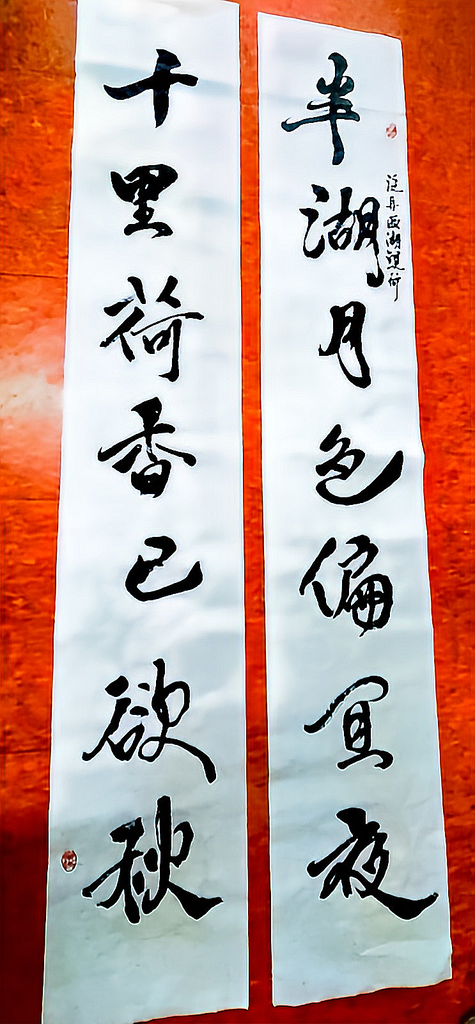 半湖月色偏宜夜
泛舟西湖觀荷
千里荷香已欲秋